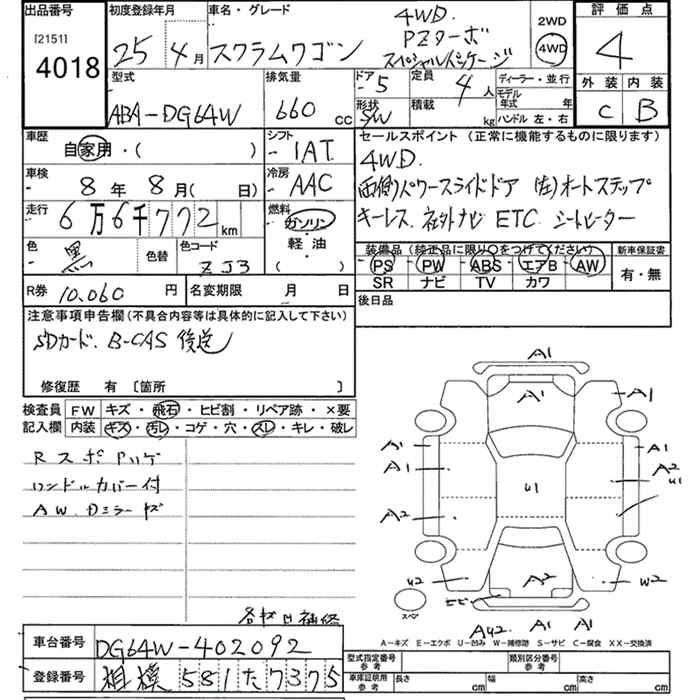 出品番号 初度登録年月 車名・グレード 2WD 評価点
[2151] 4018 25年 4月 スクラムワゴン 4WD. PZターボ スペシャルパッケージ 4WD 4
型式 排気量 ドア 定員 ディーラー・並行 外装 内装
ABA-DG64W 660cc -5 4人 モデル年式 年 C B
形状 SW 積載 kg ハンドル 左・右
車歴 自家用・( ) シフト - IAT セールスポイント (正常に機能するものに限ります)
車検 8年 8月( 日) 冷房 - AAC 4WD.
両側パワースライドドア (左)オートステップ
走行 6万6千772km 燃料 ガソリン・軽・油 ( ) キーレス. 社外ナビ ETC シートヒーター
色 黒 色替 色コード ZJ3 装備品(純正品に限り○をつけてください) 新車保証書
-PS -PW -ABS -エアB -AW 有・無
SR ナビ TV カワ
R券 10,060円 名変期限 月 日 後日品
注意事項申告欄(不具合内容等は具体的に記入して下さい)
SDカード. B-CAS 後送
修復歴 有 〔箇所 〕
検査員 FW キズ・飛石・ヒビ割・リペア跡・×要
記入欄 内装 キズ・汚レ・コゲ・穴・スレ・キレ・破レ
ハンドルカバー付
AW. Dミラーキズ
A1
A1 A1
A1 A1
A1 A2 U1
U1
A2
U2 A2 W2
スペア
A1 A1
A-キズ E-エクボ U-凹み W-補修跡 S-サビ C-腐食 XX-交換済
車台番号 DG64W-402092
登録番号 相模 581 た 7375
型式指定番号 参考 類別区分番号 参考
車庫証明用 参考 長さ cm 幅 cm 高さ cm